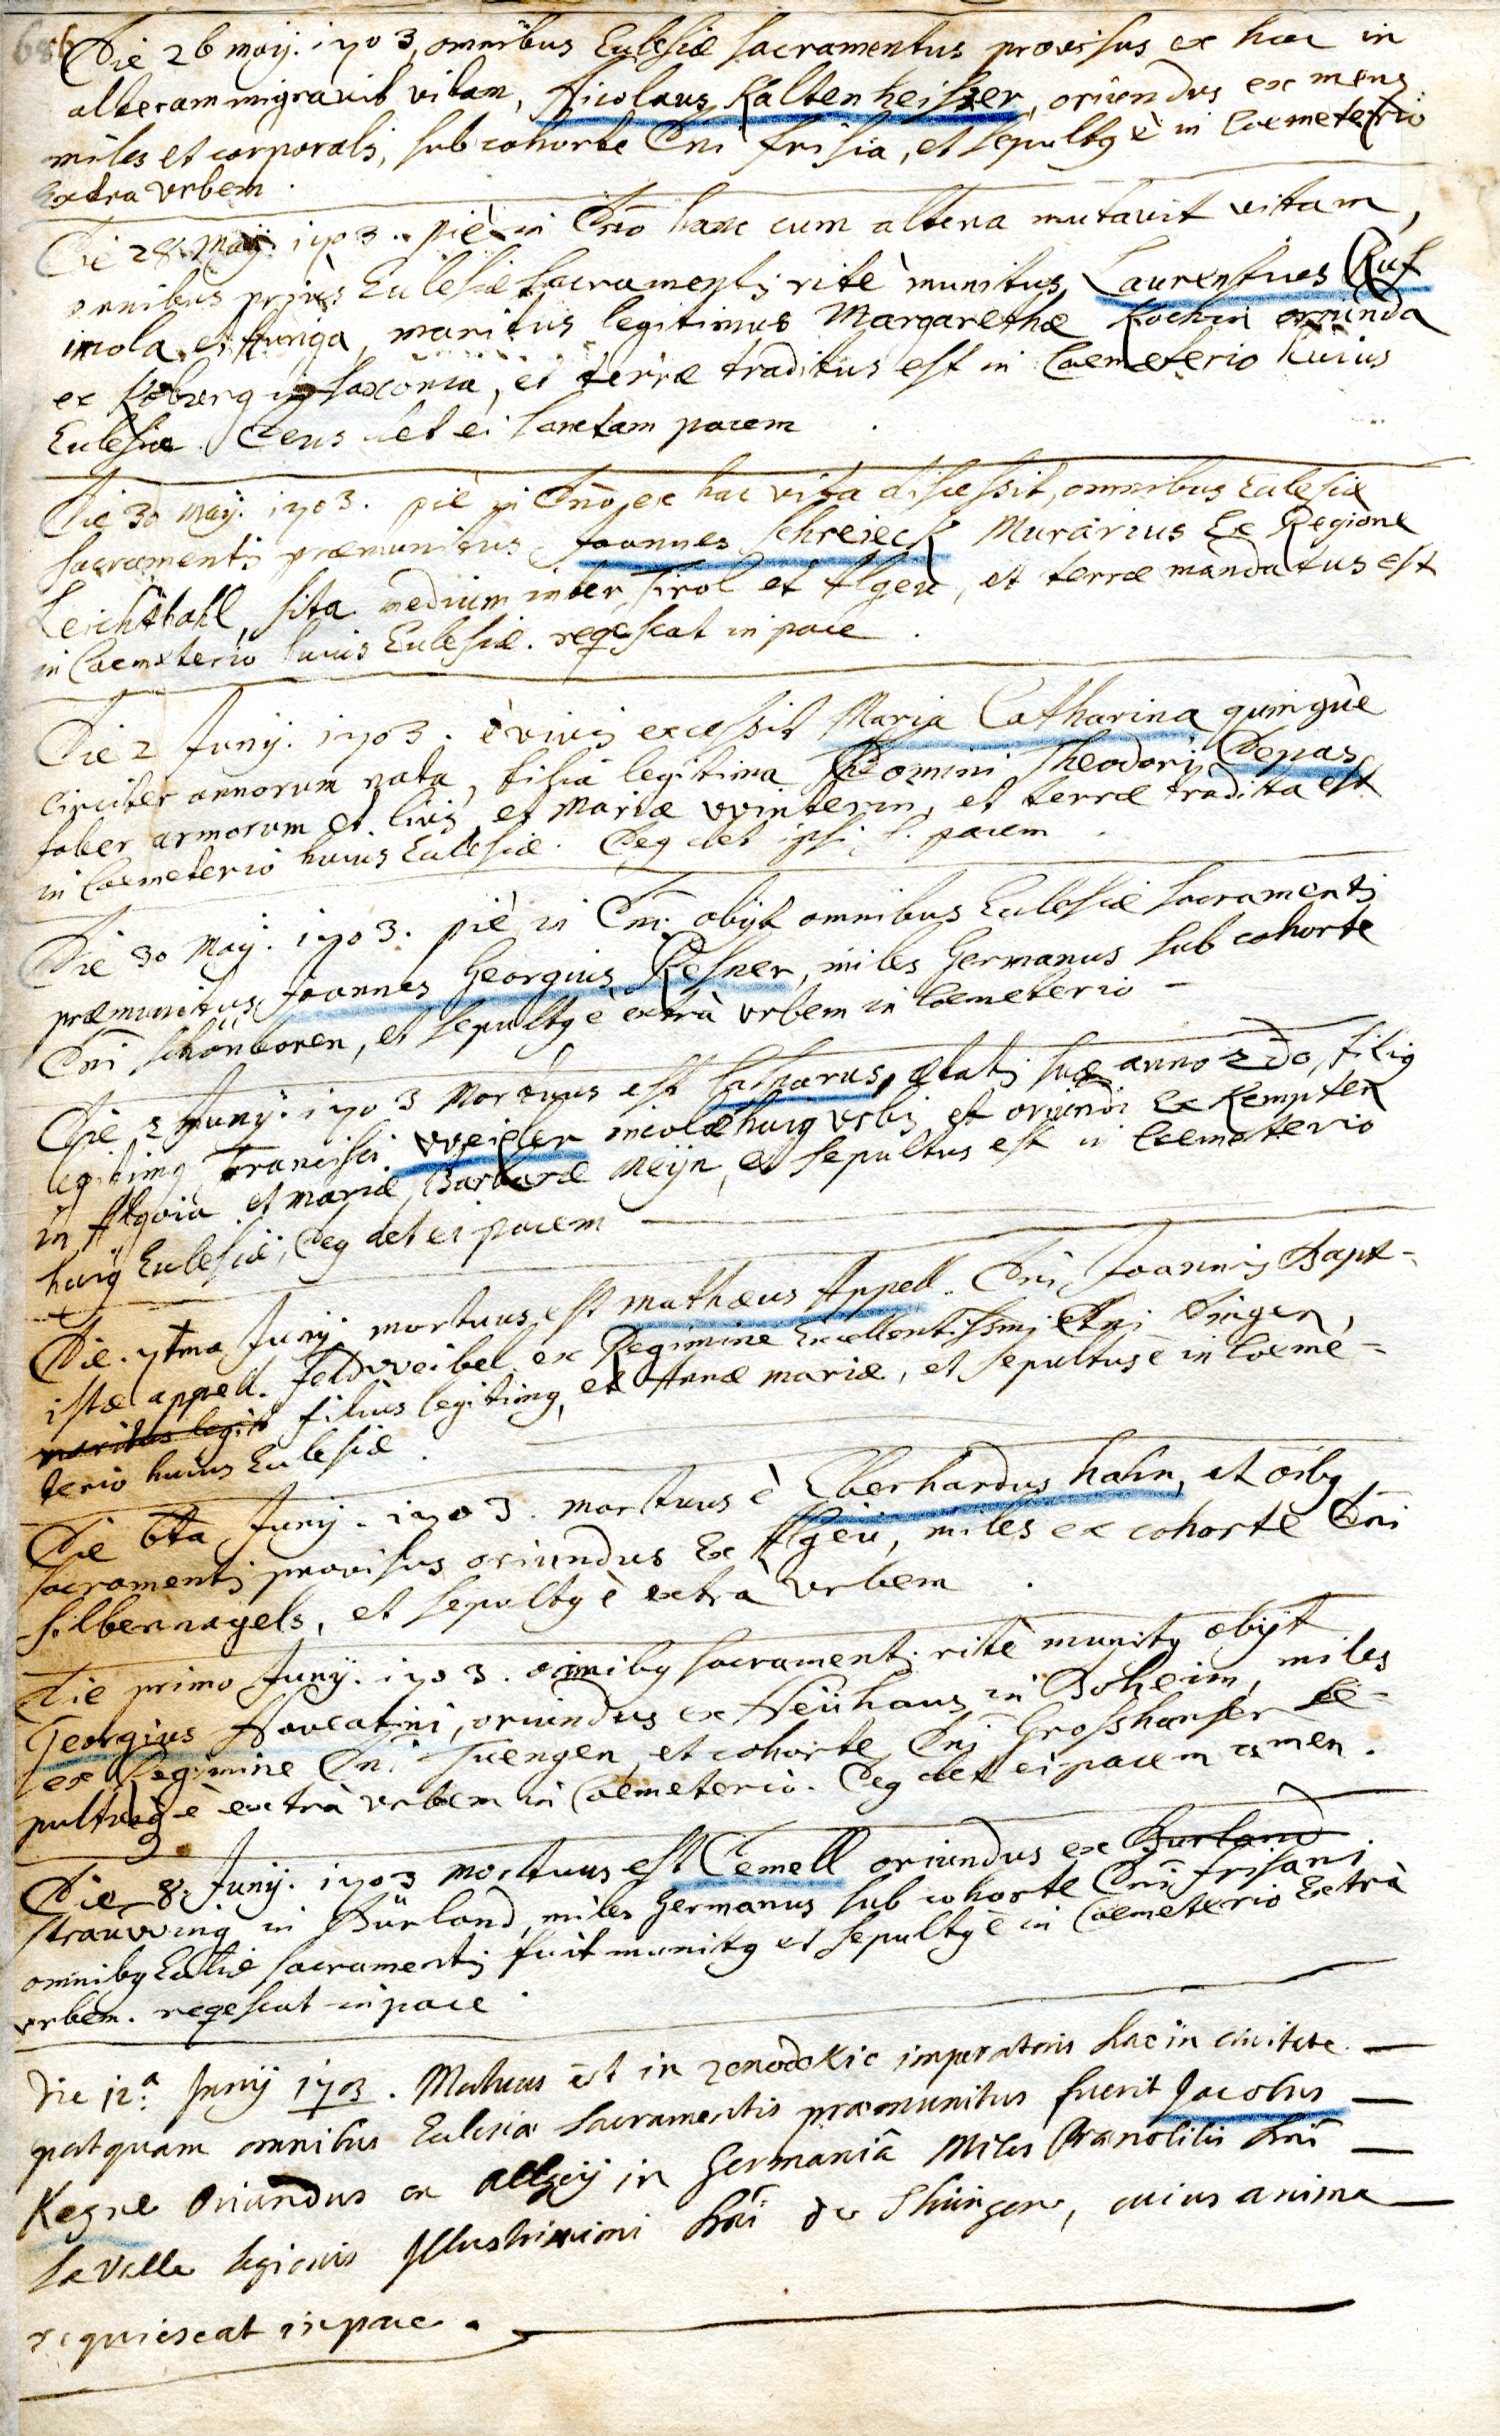 686
Die 26 maÿ. 1703, omnibus Eclesiæ sacramentus provisus ex hac in
alteram migravit vitam, Nicolaus Kaltenheisser, oriundus ex mens
miles et corporals, sub cohorte Dni frisia, et sepultg è in Coemeterio
Extra vrbem.
Die 28 Maÿ. 1703. piè in Dno hanc cum altera mutavit vitam,
omnibus priùs Eclesiæ Sacramentis ritè munitus, Laurentius Ruf
incola et Auriga, maritus legitimus Margarethæ Kochin oriunda
ex Koberg in Saxonia, et terræ traditus est in Coemeterio huius
Eclesiæ. Deus det ei sanctam pacem.
Die 30 Maÿ. 1703. piè in Dno ex hac vita discessit, omnibus Eclesiæ
sacramentis præmunitus Joannes Schreieck Murarius Ex Regione
Leichthahl, sita medium inter Tirol et Algeu, et terræ mandatus est
in Coemeterio huius Eclesiæ. reqescat in pace.
Die 2 Junÿ. 1703. è vivis excessit Maria Catharina quinquè
circiter annorum nata, filia legitima Domini Theodori Depas
faber armorum et civis, et Mariæ vvinterin, et terræ tradita est
in Coemeterio huius Eclesiæ. Deg det ipsi S. pacem.
Die 30 Maÿ. 1703. piè in Dni obijt omnibus Eclesiæ Sacramentis
præmunitus Joannes Georgius Resner, miles Germanus sub cohorte
Dni Schönboren, et sepultg è extrà vrbem in Coemeterio -
Die 2 Junÿ. 1703 Mortuus est Casparus, ætatis suæ anno 2do, filig
legitimg Francisci vveiler incolæ huig vrbis et oriundi Ex Kempten
in Algoia et mariæ Barbaræ Meÿn, et sepultus est in Coemeterio
huig Eclesiæ, Deg det ei pacem
Die 7tma Junÿ mortuus est Mathæus Appell. Dni Joannis Bapt-
istæ appell. Feldvveibel ex Regimine Excellentissimi Dni Dingen,
maritus legit filius legitimg, et Annæ mariæ, et sepultus è in Coeme-
terio huius Eclesiæ.
Die 6ta Junÿ. 1703. mortuus è Eberhardus hahn, et oibg
sacramentis provisus oriundus Ex Algeu, miles ex cohorte Dni
Silbernagels, et sepultg è extrà vrbem.
Die primo Junÿ. 1703. omnibg sacramentis ritè munitg obijt
Georgius Aovcatini, oriundus ex Neühaus in Boheim, miles
ex Regimine Dni Tuengen, et cohorte Dni Grosshanser se-
pultus è extrà vrbem in Coemeterio. Deg det ei pacem amen.
Die 8. Junÿ. 1703 mortuus est Cemell oriundus ex Burland
strauving in Bürland, miles Germanus sub cohorte Dni frisani
omnibg Ecliæ sacramentis fuit munitg et sepultg è in Coemeterio Extrà
vrbem. reqescat in pace.
Die 12.a Junÿ 1703. Mortuus est in xenodokio imperatoris hac in civitate —
postquam omnibus Eclesiæ Sacramentis præmunitus fuerit Jacobus —
Kegne Oriundus ex Allgeij in Germaniâ Miles Dni —
La Valle legionis Illustrissimi Dni de Thüngen, cuius anima —
requiescat in pace.